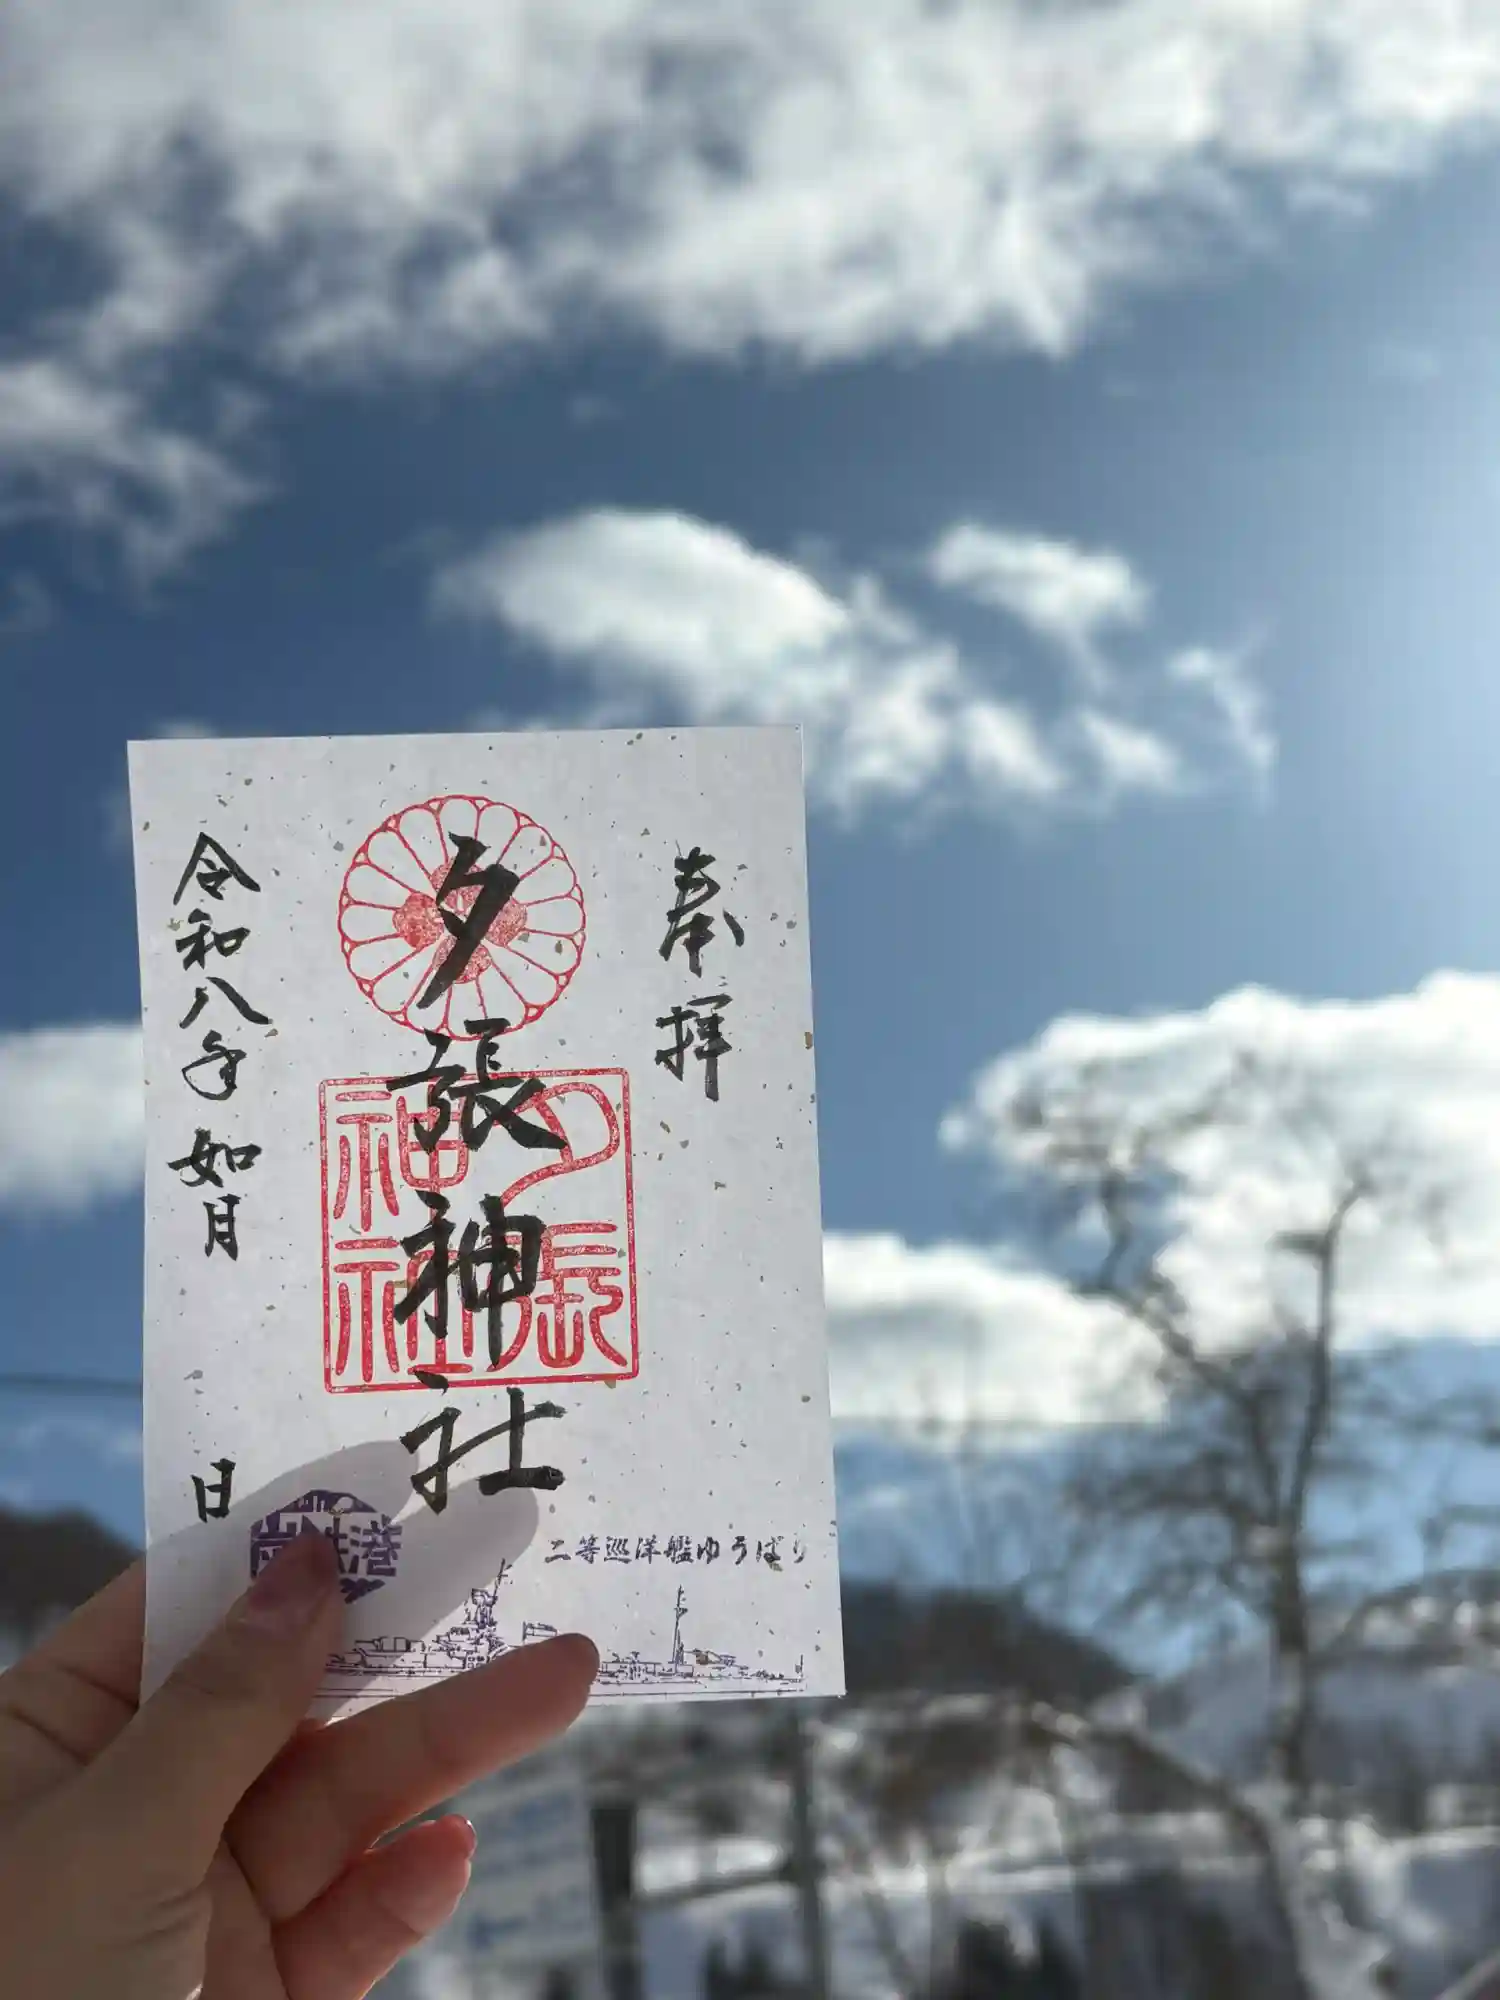 奉拝
夕張神社
夕張
神社
令和八年 如月
日
炭鉄港
二等巡洋艦ゆうばり